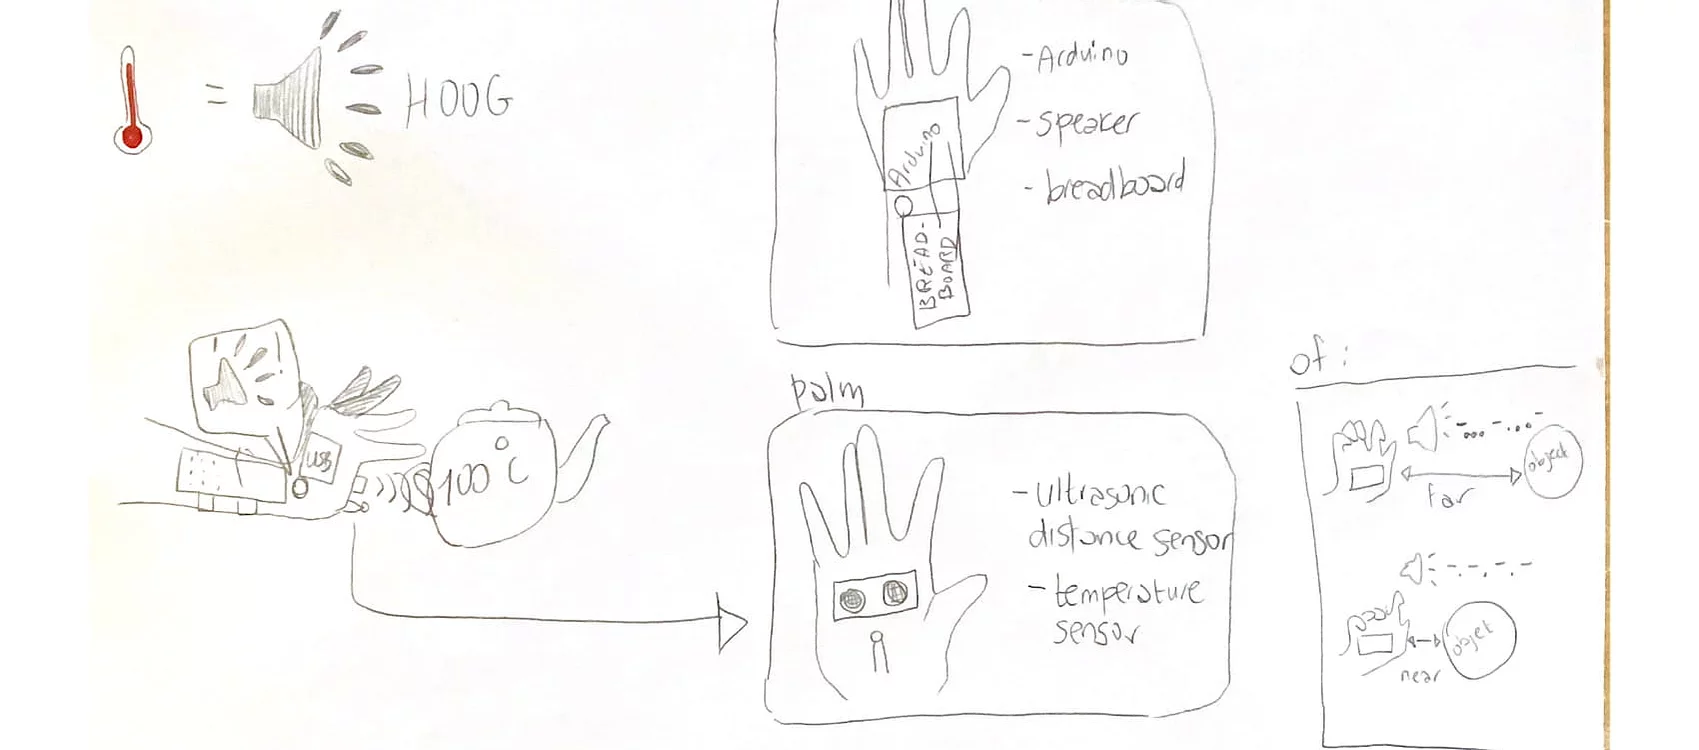 = HOOG
Arduino
BREAD-
BOARD
- Arduino
- speaker
- breadboard
USB
100°C
palm
- ultrasonic
distance sensor
- temperature
sensor
of:
object
far
objet
near